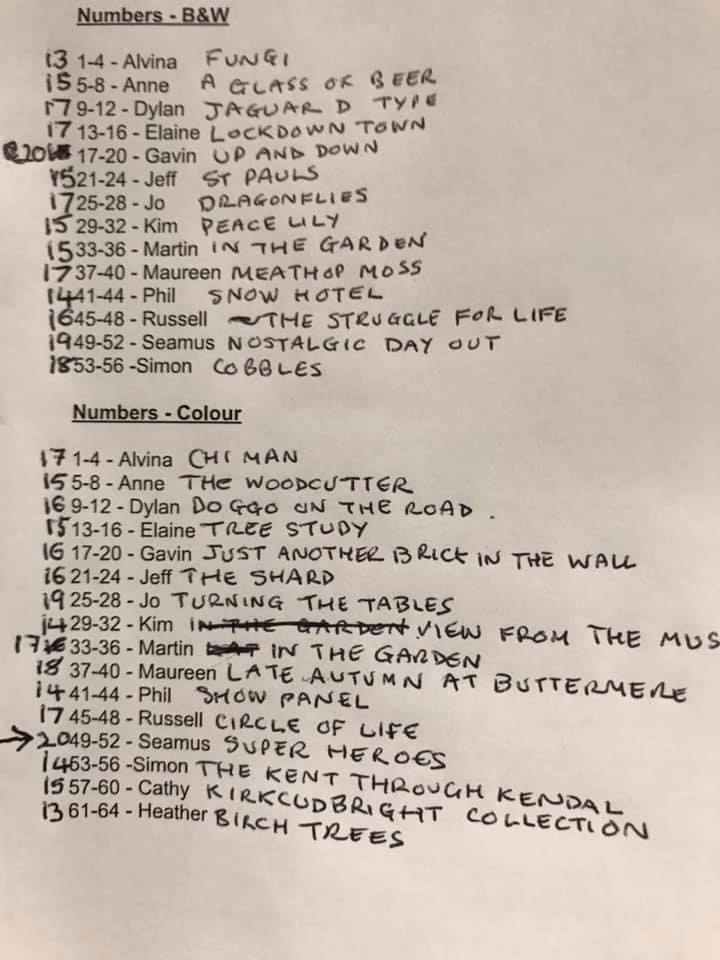 Numbers - B&W
13 1-4 - Alvina FUNGI
15 5-8 - Anne A GLASS OF BEER
17 9-12 - Dylan JAGUAR D TYPE
17 13-16 - Elaine LOCKDOWN TOWN
20 17-20 - Gavin UP AND DOWN
15 21-24 - Jeff ST PAULS
17 25-28 - Jo DRAGONFLIES
15 29-32 - Kim PEACE LILY
15 33-36 - Martin IN THE GARDEN
17 37-40 - Maureen MEATHOP MOSS
14 41-44 - Phil SNOW HOTEL
16 45-48 - Russell THE STRUGGLE FOR LIFE
19 49-52 - Seamus NOSTALGIC DAY OUT
18 53-56 -Simon COBBLES
Numbers - Colour
17 1-4 - Alvina CHI MAN
15 5-8 - Anne THE WOODCUTTER
16 9-12 - Dylan DOGGO ON THE ROAD.
15 13-16 - Elaine TREE STUDY
16 17-20 - Gavin JUST ANOTHER BRICK IN THE WALL
16 21-24 - Jeff THE SHARD
19 25-28 - Jo TURNING THE TABLES
14 29-32 - Kim IN THE GARDEN VIEW FROM THE MUS
17 33-36 - Martin IN THE GARDEN
18 37-40 - Maureen LATE AUTUMN AT BUTTERMERE
14 41-44 - Phil SHOW PANEL
17 45-48 - Russell CIRCLE OF LIFE
→ 20 49-52 - Seamus SUPER HEROES
14 53-56 -Simon THE KENT THROUGH KENDAL
15 57-60 - Cathy KIRKCUDBRIGHT COLLECTION
13 61-64 - Heather BIRCH TREES